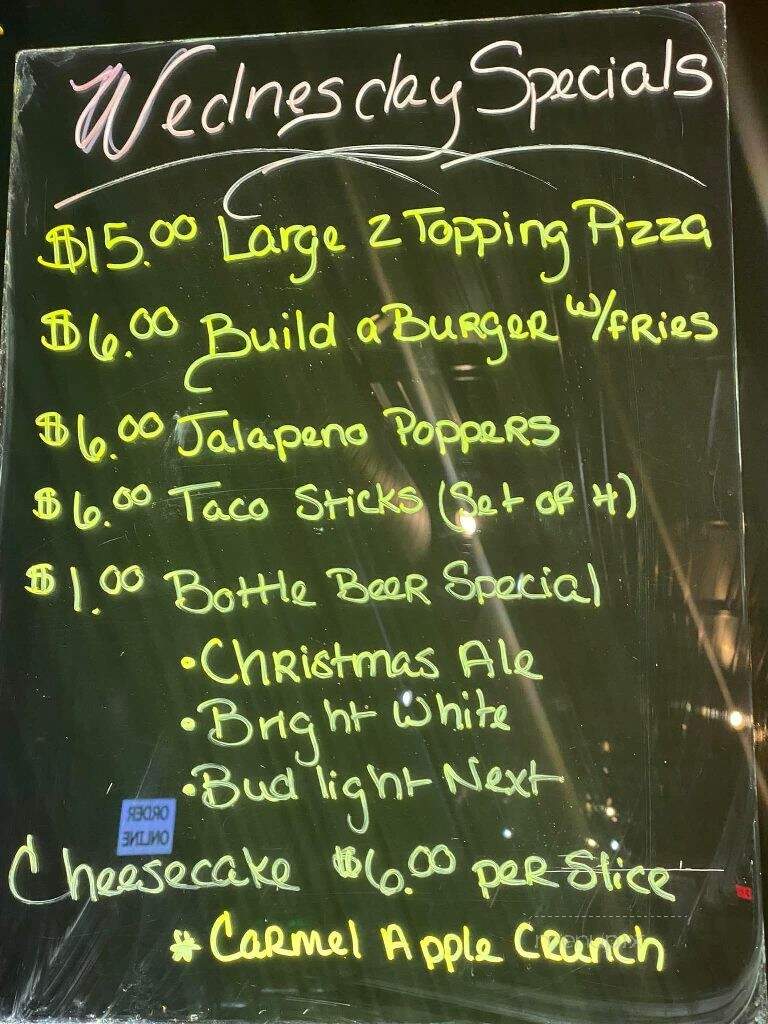 Wednesday Specials
$15.00 Large 2 Topping Pizza
$6.00 Build a Burger w/fries
$6.00 Jalapeno Poppers
$6.00 Taco Sticks (Set of 4)
$1.00 Bottle Beer Special
•Christmas Ale
•Bright White
•Bud light Next
ORDER
ONLINE
Cheesecake $6.00 per Slice
* Carmel Apple Crunch